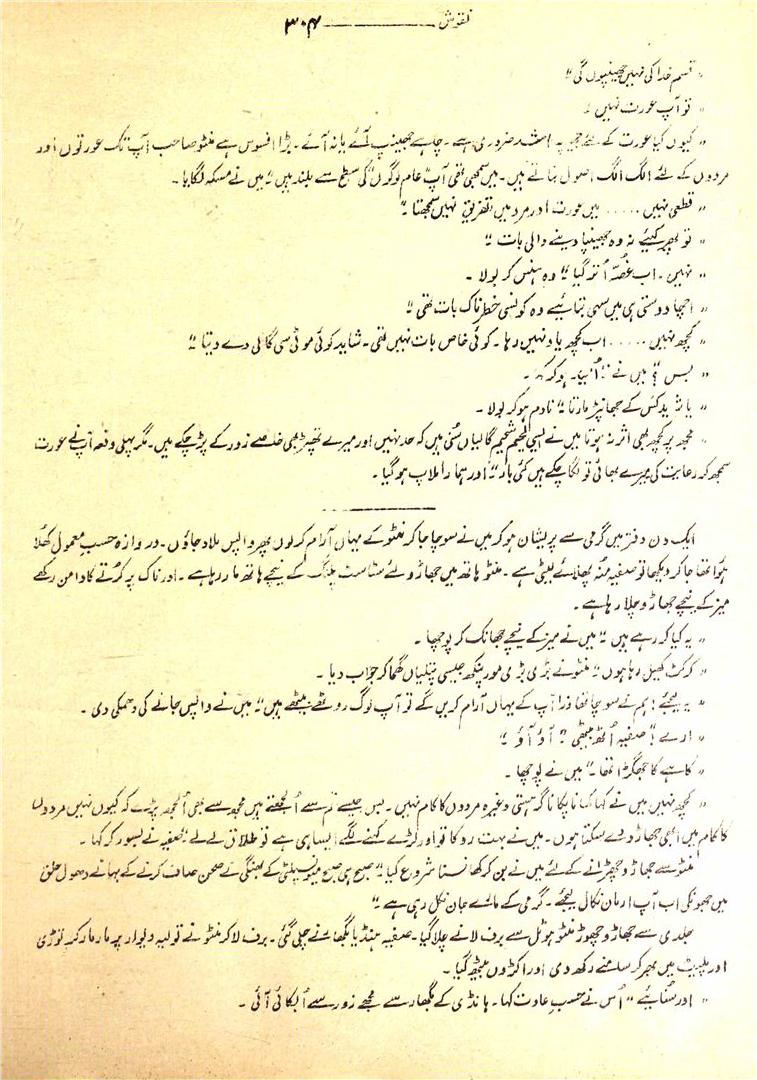 نقوش ــــــــــــ ۳۰۴
” قسم خدا کی نہیں جھینپوں گی “
” تو آپ عورت نہیں “
” کیوں کیا عورت کے لئے جھینپنا اشد ضروری ہے۔ چاہے جھینپ آئے یا نہ آئے۔ بڑا افسوس ہے منٹو صاحب آپ تک عورتوں اور
مردوں کے لئے الگ الگ اصول بناتے ہیں۔ میں سمجھی تھی آپ ”عام لوگوں“ کی سطح سے بلند ہیں“ میں نے مسکہ لگایا۔
” قطعی نہیں ..... میں عورت اور مرد میں تفریق نہیں سمجھتا “
” تو پھر کہیئے نہ وہ جھینپا دینے والی بات “
” نہیں۔ اب غصّہ اُتر گیا“ وہ ہنس کر بولا۔
” اچھا دوستی ہی میں سہی بتائیے وہ کونسی خطرناک بات تھی “
” کچھ نہیں ..... اب کچھ یاد نہیں رہا۔ کوئی خاص بات نہیں تھی۔ شاید کوئی موٹی سی گالی دے دیتا “
” بس “؟ میں نے نا اُمید ہو کر کہا۔
” یا شاید کس کے جھانپڑ مارتا“ نادم ہو کر بولا۔
” مجھ پر کچھ بھی اثر نہ ہوتا میں نے ایسی لحیم شحیم گالیاں سنی ہیں کہ حد نہیں اور میرے تھپڑ بھی خاصے زور کے پڑ چکے ہیں۔ مگر پہلی دفعہ آپ نے عورت
سمجھ کر رعایت کی میرے بھائی تو لگا چکے ہیں کئی بار“ اور ہمارا ملاپ ہو گیا۔
ایک دن دفتر میں گرمی سے پریشان ہو کر میں نے سوچا جا کر منٹو کے یہاں آرام کر لوں پھر واپس ملاد جاؤں۔ دروازہ حسبِ معمول کھلا
ہوا تھا جا کر دیکھا تو صفیہ منہ پھلائے لیٹی ہے۔ منٹو ہاتھ میں جھاڑو لئے سٹاسٹ پلنگ کے نیچے ہاتھ مار رہا ہے۔ اور ناک پہ کُرتے کا دامن رکھے
میز کے نیچے جھاڑو چلا رہا ہے۔
” یہ کیا کر رہے ہیں “ میں نے میز کے نیچے جھانک کر پوچھا۔
” کرکٹ کھیل رہا ہوں“ منٹو نے بڑی بڑی مور پنکھ جیسی پتلیاں گھما کر جواب دیا۔
” یہ لیجئے! ہم نے سوچا تھا ذرا آپ کے یہاں آرام کریں گے تو آپ لوگ روٹھے بیٹھے ہیں“ میں نے واپس جانے کی دھمکی دی۔
” ارے“! صفیہ اُٹھ بیٹھی “ آؤ آؤ “
” کاہے کا جھگڑا تھا۔“ میں نے پوچھا۔
” کچھ نہیں میں نے کہا کھانا پکانا گرہستی وغیرہ مردوں کا کام نہیں۔ بس جیسے تم سے اُلجھتے ہیں مجھ سے بھی اُلجھ پڑے کہ کیوں نہیں مردوں
کا کام میں ابھی جھاڑو دے سکتا ہوں۔ میں نے بہت روکا تو اور لڑے کہنے لگے ایسا ہی ہے تو طلاق لے لے“ صفیہ نے بسور کر کہا۔
منٹو سے جھاڑو چھڑانے کے لئے میں نے بن کر کھانسنا شروع کیا“ صبح ہی صبح میونسپلٹی کے بھنگی نے صحن صاف کرنے کے بہانے دھول حلق
میں جھونکی اب آپ ارمان نکال لیجئے۔ گرمی کے مارے جان نکل رہی ہے “
جلدی سے جھاڑو چھوڑ منٹو ہوٹل سے برف لانے چلا گیا۔ صفیہ ہنڈیا بگھارنے چلی گئی۔ برف لا کر منٹو نے تولیہ دیوار پر مار مار کر توڑی
اور پلیٹ میں بھر کر سامنے رکھ دی اور اکڑوں بیٹھ گیا۔
” اور سنائیے“ اُس نے حسبِ عادت کہا۔ ہانڈی کے بگھار سے مجھے زور سے اُبکائی آئی۔